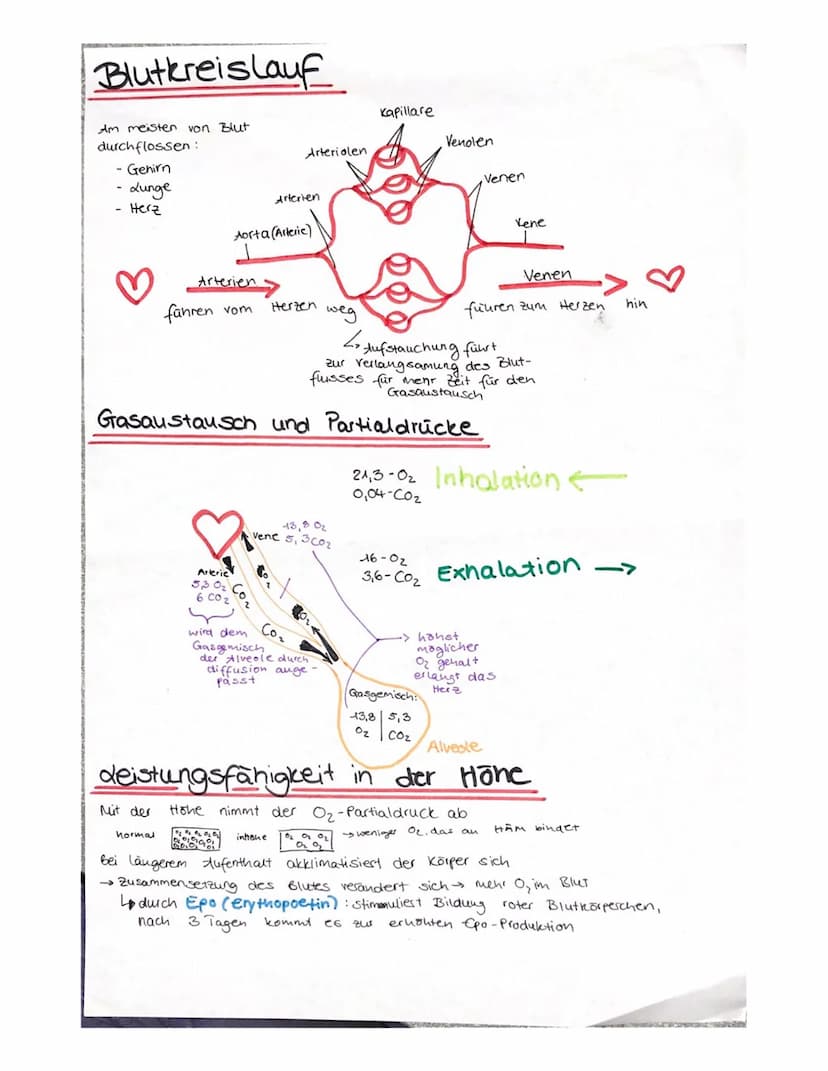 Blutkreislauf
Am meisten von Blut
durchflossen:
- Gehirn
- Lunge
- Herz
Kapillare
Arteriolen
Venolen
Arterien
Venen
Aorta (Arterie)
Vene
Arterien
führen vom Herzen weg
Venen
führen zum Herzen hin
↳ Aufstauchung führt
zur Verlangsamung des Blut-
flusses für mehr Zeit für den
Gasaustausch
Gasaustausch und Partialdrücke
21,3-O₂
0,04-CO₂
Inhalation ←
16-O₂
3,6-CO₂
Exhalation →
Vene
13,8 O₂
5,3 CO₂
Arterie
5,3 O₂
6 CO₂
CO₂
CO₂
O₂
O₂
wird dem
Gasgemisch
der Alveole durch
diffusion ange-
passt
→ höhst
möglicher
O₂ gehalt
erlangt das
Herz
Gasgemisch:
13,8 | 5,3
O₂ | CO₂
Alveole
Leistungsfähigkeit in der Höhe
Mit der Höhe nimmt der O₂-Partialdruck ab
normal
O₂ O₂ O₂ O₂
inhöhe
O₂ O₂ O₂
O₂ O₂
→ weniger O₂, das an Häm bindet
Bei längerem Aufenthalt akklimatisiert der Körper sich
→ Zusammensetzung des Blutes verändert sich → mehr O₂ im Blut
↳ durch Epo (Erythopoetin): stimuliest Bildung roter Blutkörperschen,
nach 3 Tagen kommt es zur erhöhten Epo-Produktion